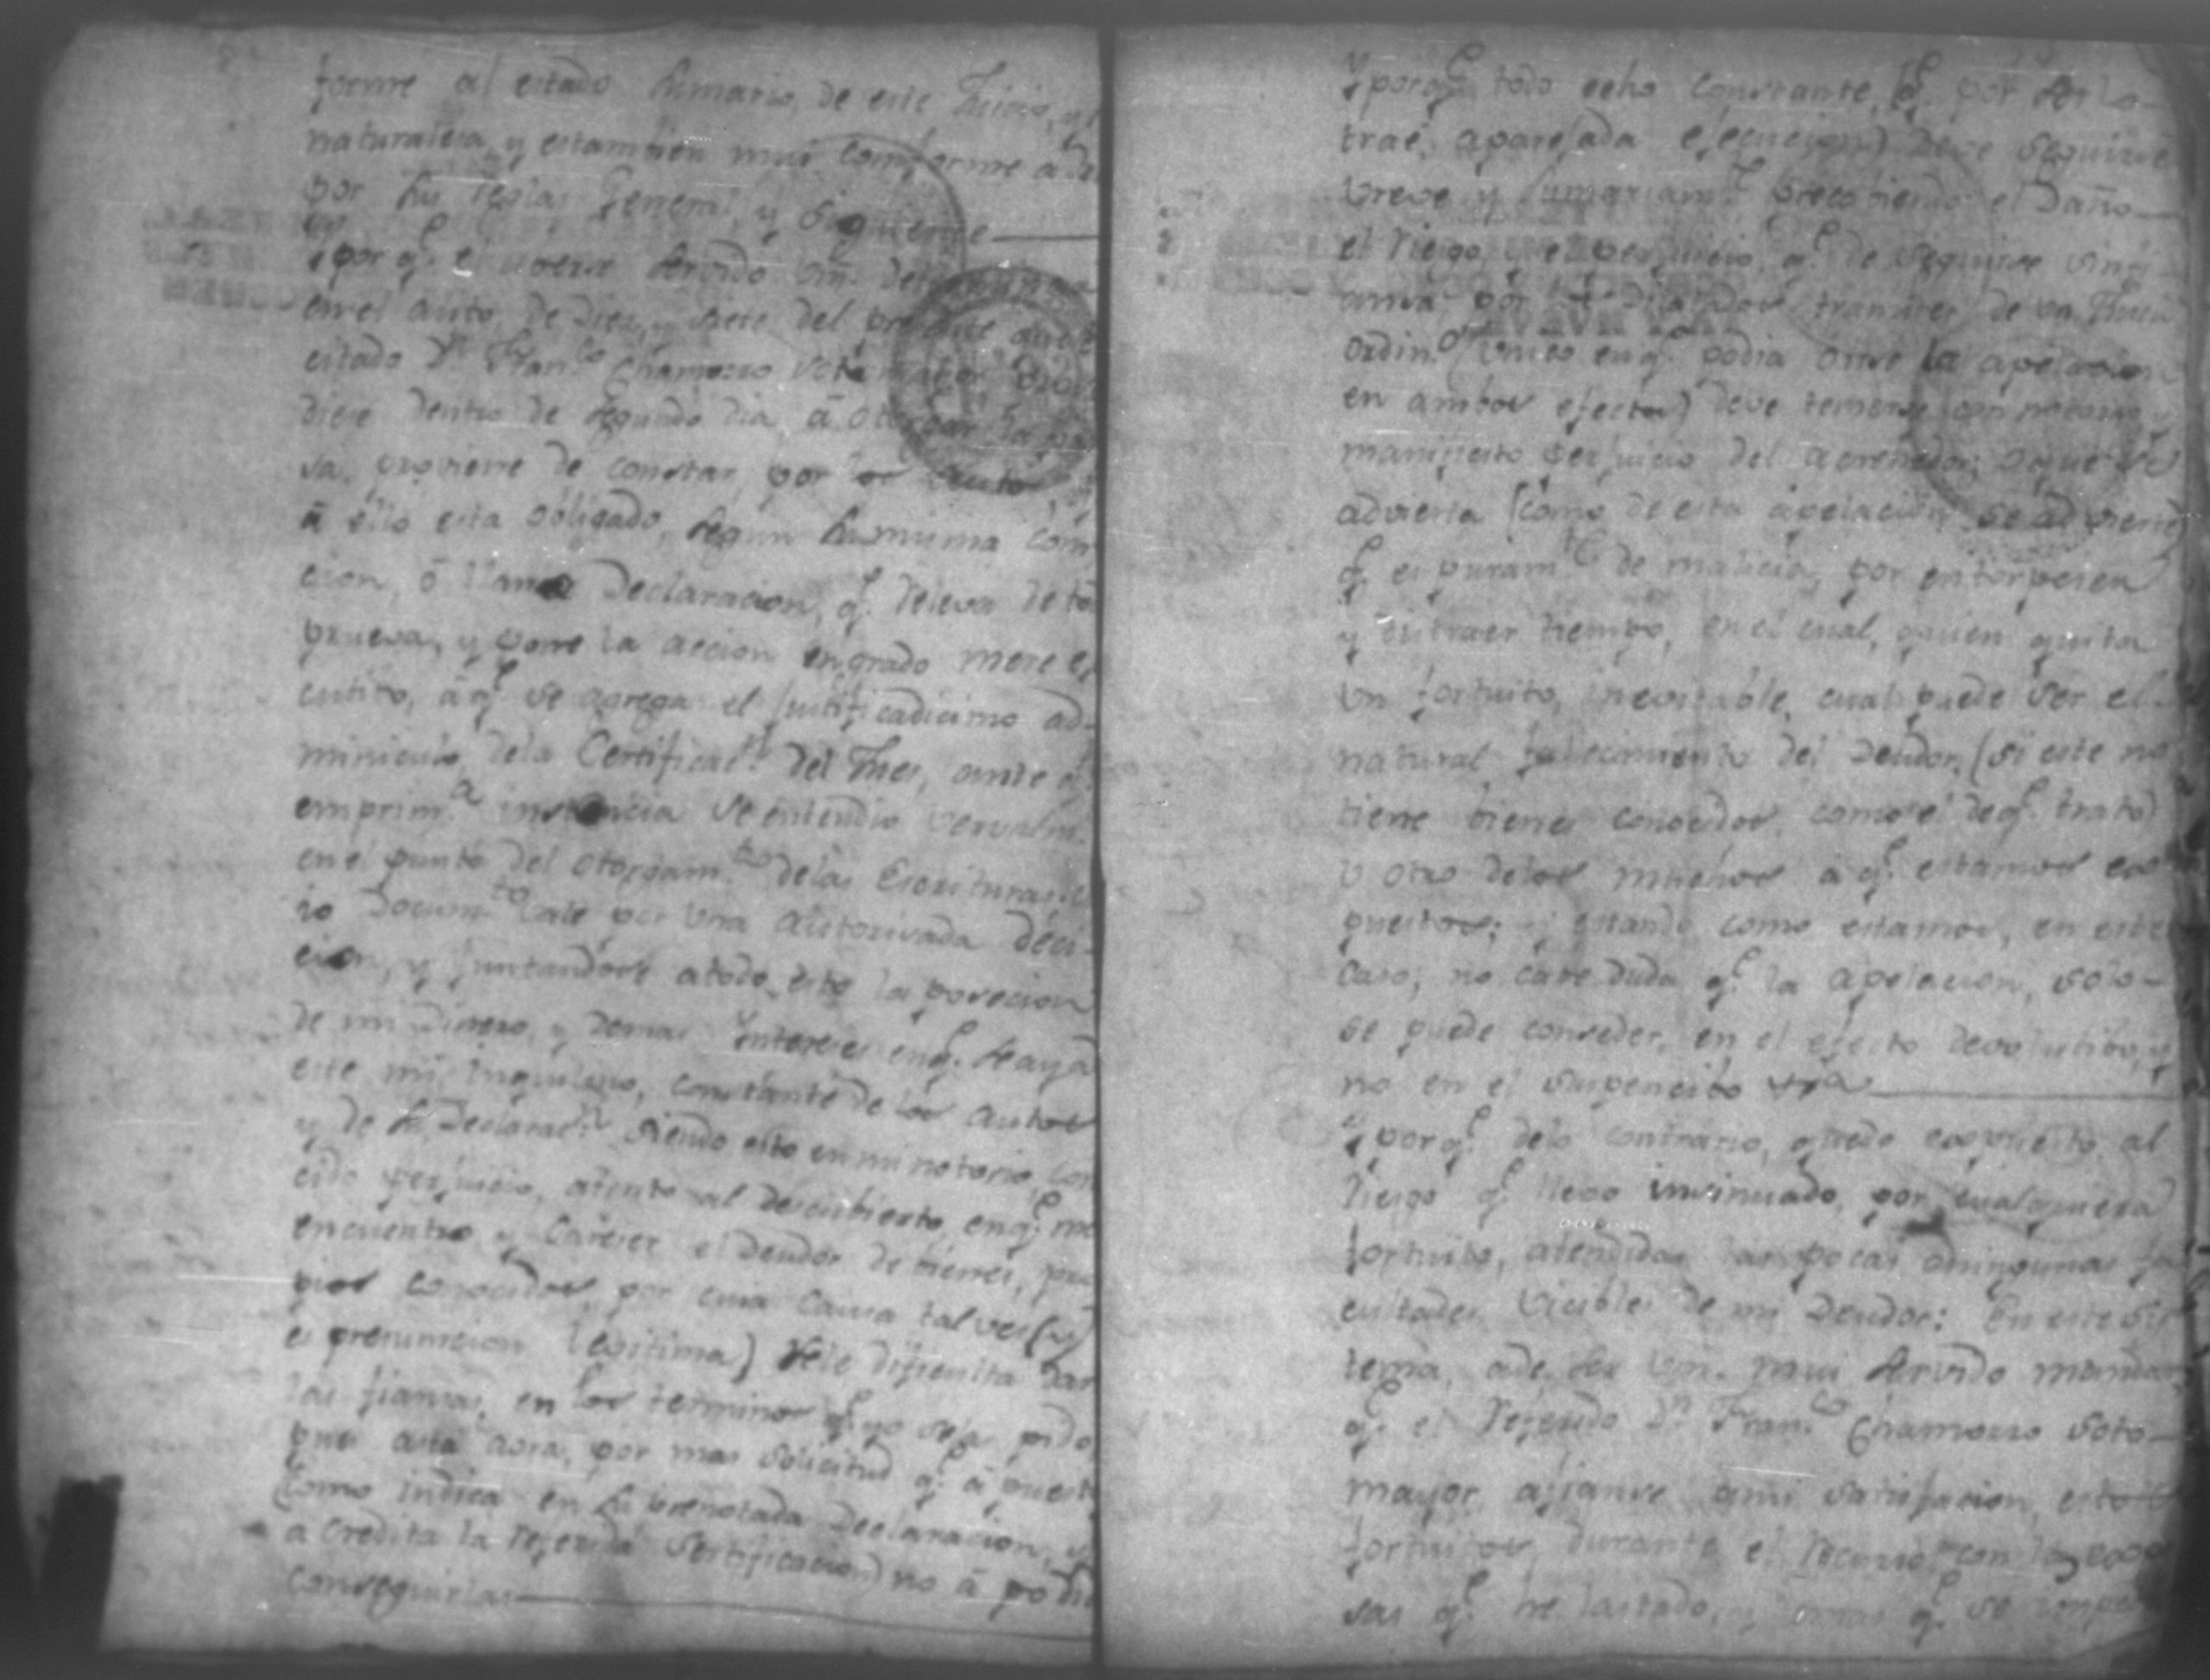 forme al estado sumario, de este Juicio, y
naturaleza, y estambien mui conforme a
por sus reglas General, y siguiente
Yporq.e el averse servido Vm. determinar
en el auto, de Diez, y siete del presente que el
citado D.n Fran.co Chamorro Sotomayor
diese dentro de segundo dia, á otorgar la
sa, proviene de constar, por los autos
á ello esta obligado, segun su misma com
cion, ó llana Declaracion, q.e releva de to
prueva, y pone la accion en grado mere ex
cutivo, á q.e se agrega el justificadicimo ad-
miniculo, dela Certificac.n del Juez, ante q.
emprim.a instancia se entendio vervalm.
en el punto del otorgam.to delas Escrituras.
io Docum.to vale por una autorisada deci-
cion, y juntandose atodo esto la posecion
de mi Dinero, y demas intereses enq.e se aya
este mi Inquilino, constante de los autos
y de su Declarac.n siendo esto en mi notorio, con
cido perjuicio, atento al descubierto enq.e me
encuentro y Careser el Deudor de bienes, pro
pios conocidos, por cuia Causa tal ves (y
es presumcion legitima) sele dificulta dar
las fianzas, en los terminos q.e yo selas pido
pues asta aora, por mas solicitud q.e á puest
(como indica en su prenotada Declaracion, y
acredita la referida Sertificacion) no á podi
conseguirlas
Yporq.e todo echo constante, q.e por serlo
trae aparejada ejecucion) deve seguirse
breve y sumariam.te precabiendo el Daño
el riesgo, y el perjuicio q.e de seguirse
por los dilatados tramites de un Juicio
Ordin.o (unico enq.e podia oirse la apelacion
en ambos efectos) deve temerse con notorio y
manifiesto perjuicio del acrehedor; o que se
advierta (como de esta apelacion se advierte)
q.e es puram.te de malicia, por entorpeser
y extraer tiempo, en el cual, quien quita
un fortuito, inevitable, cual puede ser el
natural fallecimiento del Deudor, (si este no
tiene bienes conocidos, como el deq.e trato)
u otro delos muchos a q.e estamos ex
puestos; y estando como estamos, en este
caso, no cave duda q.e la apelacion, solo-
se puede conseder, en el efecto devolutibo, y
no en el suspencibo
Yporq.e delo contrario, quedo expuesto, al
riesgo q.e llevo insinuado, por cualquiera
fortuito, atendidas las pocas oningunas fa
cultades vicibles de mi Deudor: En este sis
tema, ade ser Vm. mui servido mandar
q.e el referido D.n Fran.co Chamorro Soto-
mayor afianse ami satisfacion, estos
fortuitos, durante el recurso con las
sas q.e he lastado, y demas q.e se